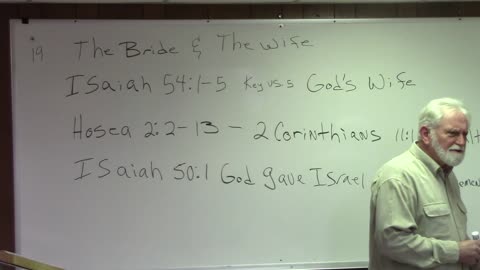 19 The Bride & The Wife
ISaiah 54:1-5 Key vs. 5 God's Wife
Hosea 2:2-13 - 2 Corinthians 11:1
ISaiah 50:1 God gave Israel